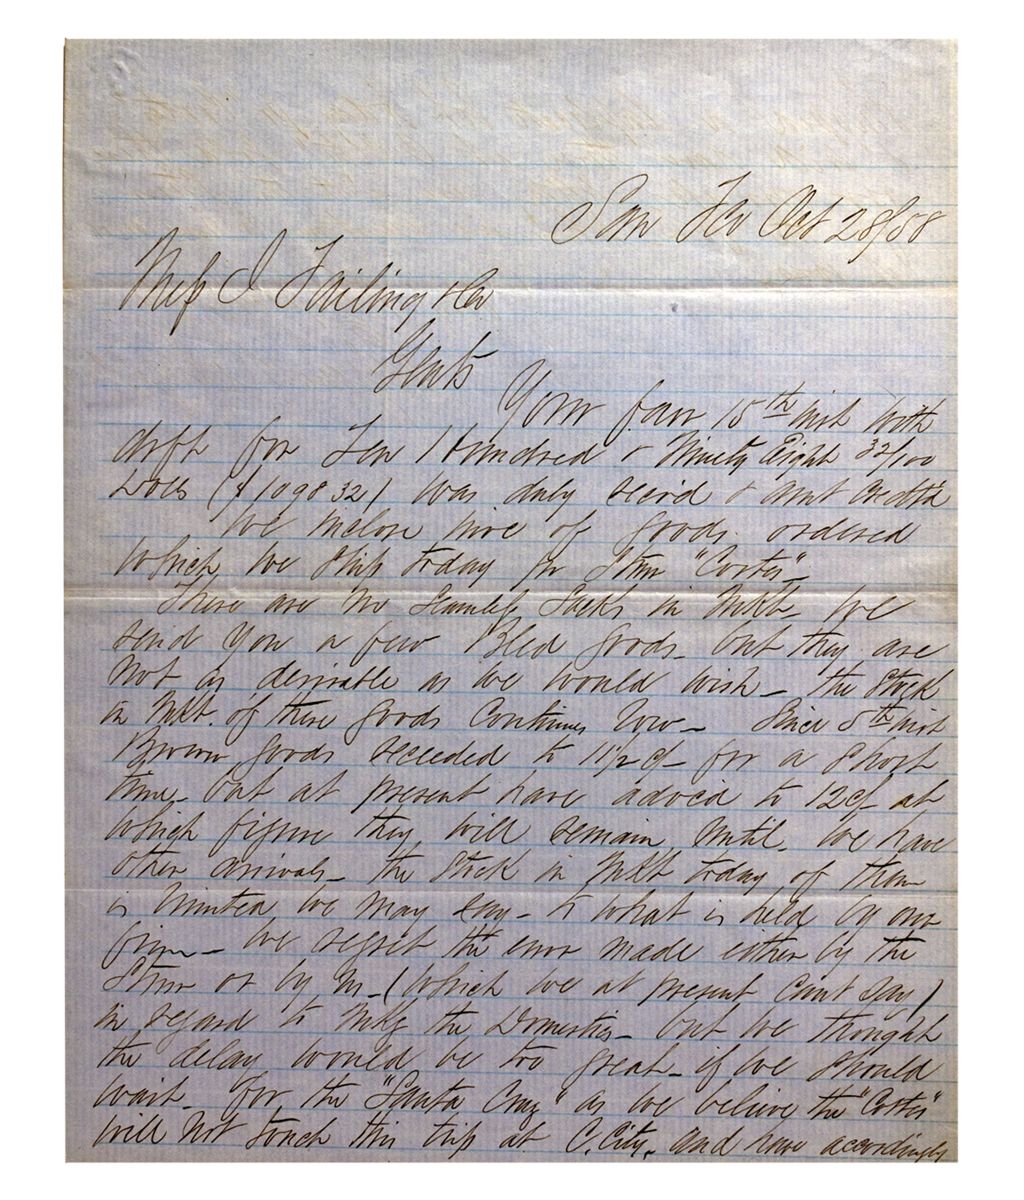 San Fco Oct 28/58
Mess J Failing & Co
Gents
Your favr 15th inst with
drft for Ten Hundred & Ninety Eight 32/100
Dolls ($1098 32) was duly recvd & amt credtd
We inclose invc of goods ordered
which we ship today pr Stmr "Cortes"
There are no Seamless Sacks in Mkt We
send you a few Bled goods but they are
not as desirable as we would wish the Stock
in Mkt. of these goods continues low Since 5th inst
Brown goods receeded to 11 1/2 c/ for a short
time but at present have advcd to 12 c/ at
which figure they will remain until we have
other arrivals the Stock in Mkt today of them
is limited we may say to what is held by our
firm We regret the error made either by the
Stmr or by us (which we at present cant say)
in regard to the Domestics but we thought
the delay would be too great if we should
wait for the "Santa Cruz" as we believe the "Cortes"
will not touch this trip at C. City. and have accordingly